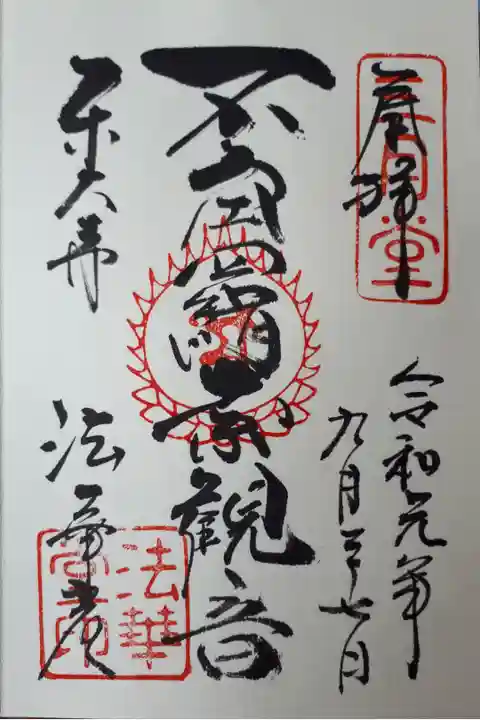 奉拝
三月堂
令和元年
九月二十七日
不空羂索觀音
東大寺
法華堂
法華
堂印